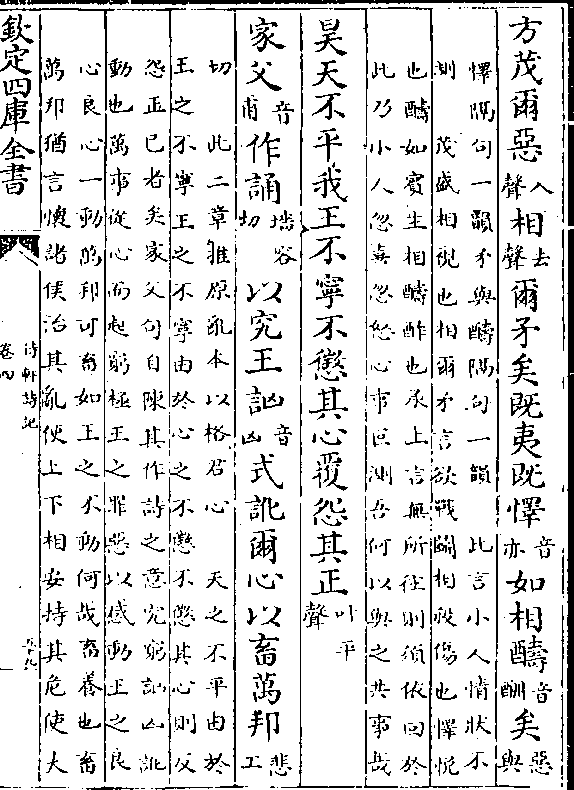 方茂爾惡入聲相去聲爾矛矣既夷既懌音亦如相醻音酬矣惡與
懌隔句一韻矛與醻隔句一韻　此言小人情狀不
則　茂盛相視也相爾矛言欲戰鬭相殺傷也懌悦
也醻如賓主相醻酢也承上言無所往則須依回於
此乃小人忽喜忽怒心事叵測吾何以與之共事哉
昊天不平我王不寧不懲其心覆怨其正叶平聲
家父音甫作誦墻容切以究王訩音凶式訛爾心以畜萬邦悲工
切　此二章推原亂本以格君心　天之不平由於
王之不寧王之不寧由於心之不懲不懲其心則反
怨正已者矣家父句自陳其作詩之意究窮訩凶訛
動也萬事從心而起窮極王之罪惡以感動王之良
心良心一動萬邦可畜如王之不動何哉畜養也畜
萬邦猶言懷諸侯治其亂使上下相安持其危使大
欽定四庫全書
詩記
卷四
五十九